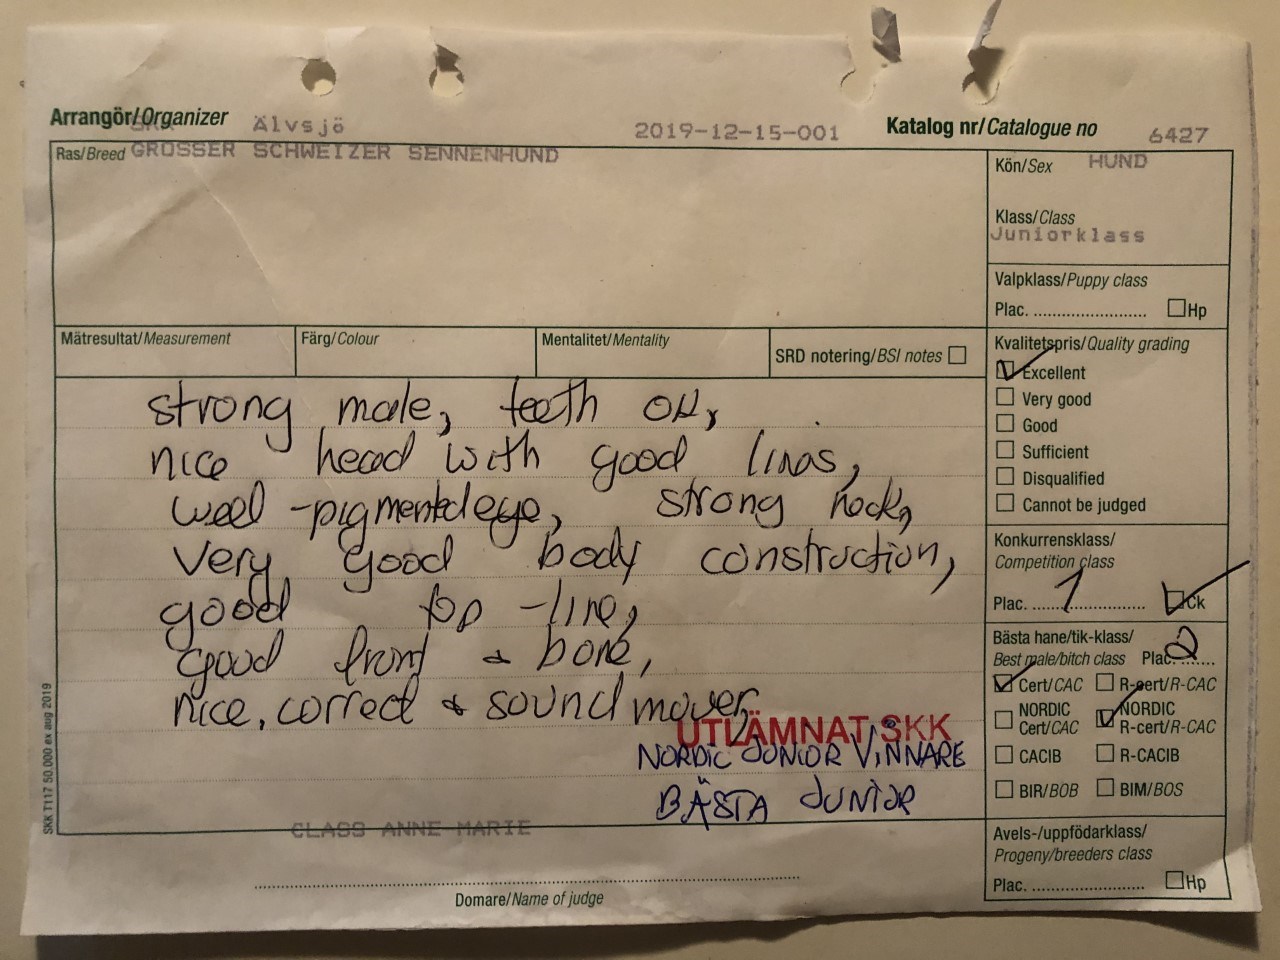 Arrangör/Organizer SKK Älvsjö 2019-12-15-001 Katalog nr/Catalogue no 6427
Ras/Breed GROSSER SCHWEIZER SENNENHUND
Kön/Sex HUND
Klass/Class
Juniorklass
Valpklass/Puppy class
Plac. ........................ Hp
Mätresultat/Measurement Färg/Colour Mentalitet/Mentality SRD notering/BSI notes
Kvalitetspris/Quality grading
Excellent
Very good
Good
Sufficient
Disqualified
Cannot be judged
strong male, teeth OK,
nice head with good lines,
well-pigmented eye, strong neck,
very good body construction,
good top-line,
good front & bone,
nice, correct & sound mover
UTLÄMNAT SKK
NORDIC JUNIOR VINNARE
BÄSTA JUNIOR
Konkurrensklass/
Competition class
Plac. 1 Ck
Bästa hane/tik-klass/
Best male/bitch class Plac. 2
Cert/CAC R-cert/R-CAC
NORDIC Cert/CAC NORDIC R-cert/R-CAC
CACIB R-CACIB
BIR/BOB BIM/BOS
Avels-/uppfödarklass/
Progeny/breeders class
Plac. ........................ Hp
CLASS ANNE MARIE
Domare/Name of judge
SKK T117 50.000 ex aug 2019